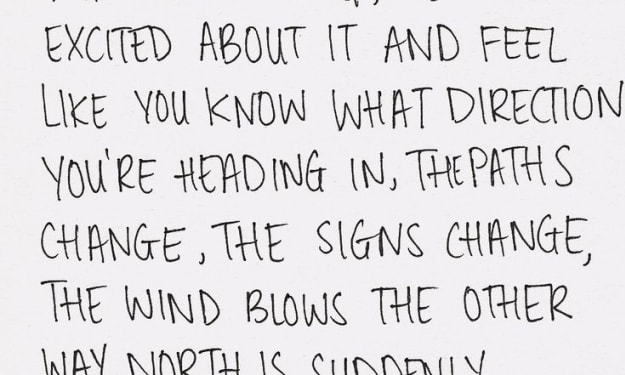 EXCITED ABOUT IT AND FEEL
LIKE YOU KNOW WHAT DIRECTION
YOU'RE HEADING IN, THE PATHS
CHANGE, THE SIGNS CHANGE,
THE WIND BLOWS THE OTHER
WAY NORTH IS SUDDENLY